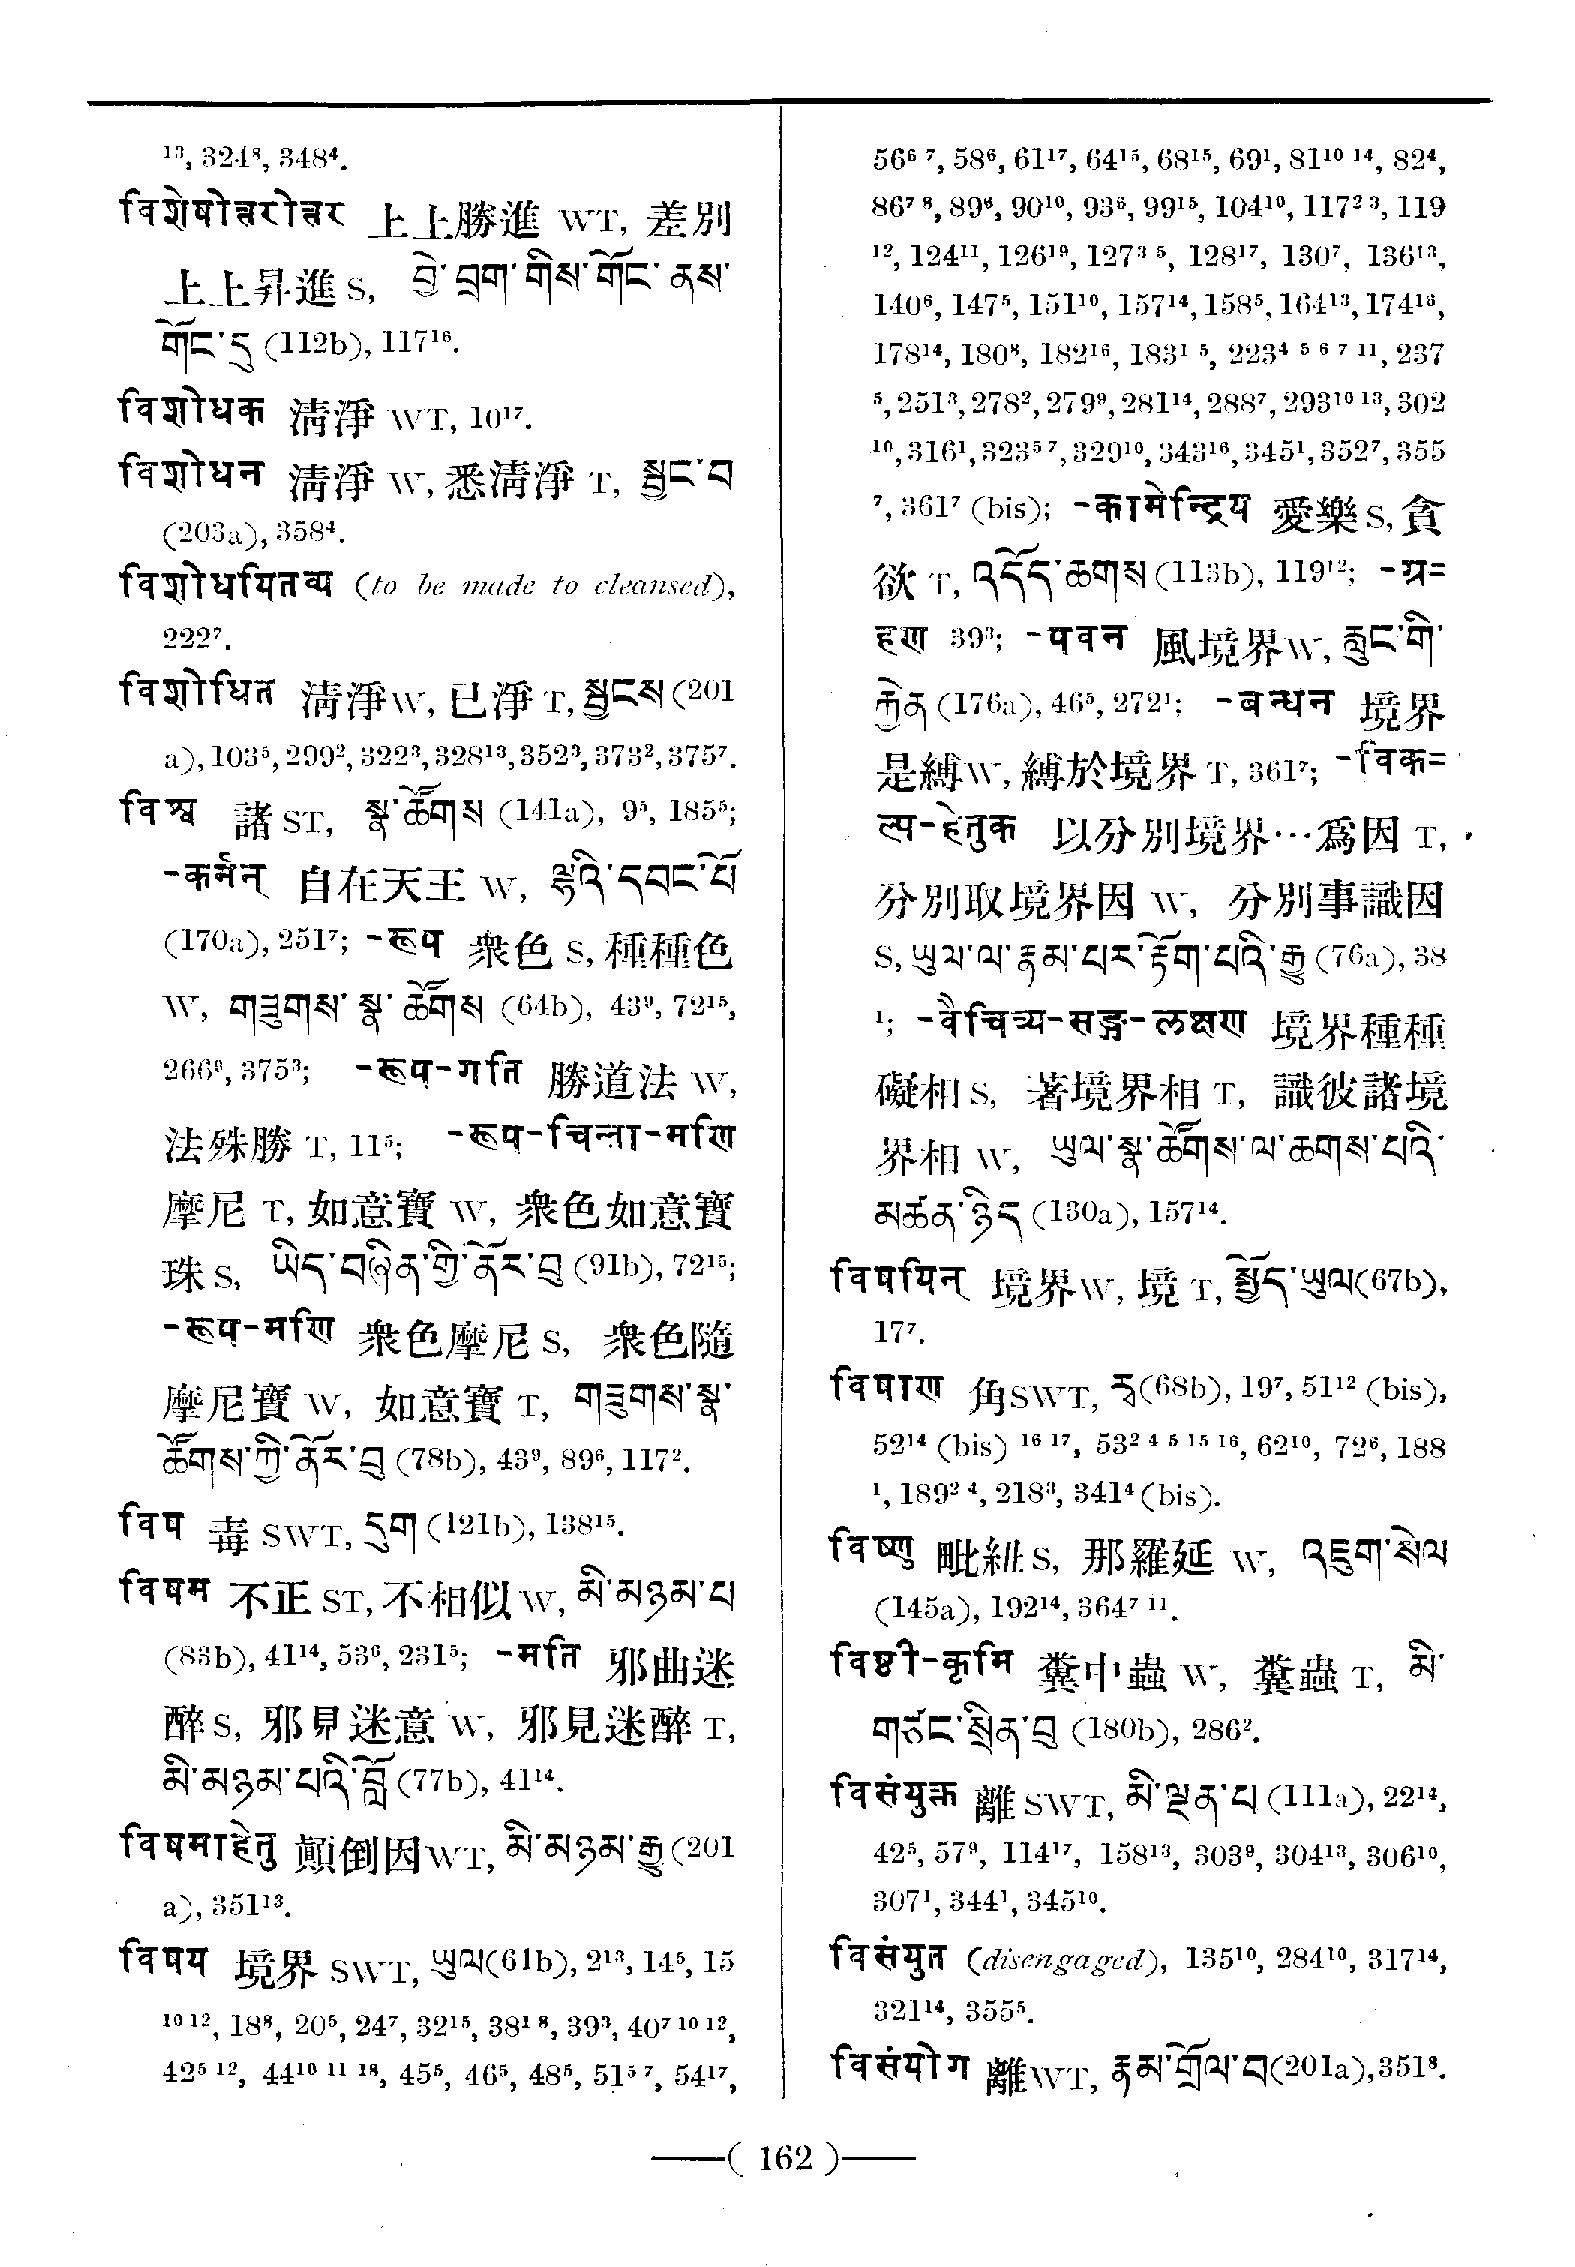 ¹³, 324⁸, 348⁴.
विशेषोत्तरोत्तर 上上勝進 WT, 差別
上上昇進 S, བྱེ་བྲག་གིས་གོང་ནས་
གོང་དུ (112b), 117¹⁶.
विशोधक 淸淨 WT, 10¹⁷.
विशोधन 淸淨 W, 悉淸淨 T, སྦྱང་བ
(203a), 358⁴.
विशोधयितव्य (to be made to cleansed),
222⁷.
विशोधित 淸淨W, 已淨 T, སྦྱངས (201
a), 103⁵, 299², 322³, 328¹³, 352³, 373², 375⁷.
विश्व 諸 ST, སྣ་ཚོགས (141a), 9⁵, 185⁵;
-कर्मन् 自在天王 W, ལྷའི་དབང་པོ
(170a), 251⁷; -रूप 衆色 S, 種種色
W, གཟུགས་སྣ་ཚོགས (64b), 43⁹, 72¹⁵,
266⁹, 375³; -रूप-गति 勝道法 W,
法殊勝 T, 11⁵; -रूप-चिन्ता-मणि
摩尼 T, 如意寶 W, 衆色如意寶
珠 S, ཡིད་བཞིན་གྱི་ནོར་བུ (91b), 72¹⁵;
-रूप-मणि 衆色摩尼 S, 衆色隨
摩尼寶 W, 如意寶 T, གཟུགས་སྣ་
ཚོགས་ཀྱི་ནོར་བུ (78b), 43⁹, 89⁶, 117².
विष 毒 SWT, དུག (121b), 138¹⁵.
विषम 不正 ST, 不相似 W, མི་མཉམ་པ
(83b), 41¹⁴, 53⁶, 231⁵; -मति 邪曲迷
醉 S, 邪見迷意 W, 邪見迷醉 T,
མི་མཉམ་པའི་བློ (77b), 41¹⁴.
विषमाहेतु 顚倒因WT, མི་མཉམ་རྒྱུ (201
a), 351¹³.
विषय 境界 SWT, ཡུལ(61b), 2¹³, 14⁵, 15
¹⁰ ¹², 18⁸, 20⁵, 24⁷, 32¹⁵, 38¹ ⁸, 39³, 40⁷ ¹⁰ ¹²,
42⁵ ¹², 44¹⁰ ¹¹ ¹⁸, 45⁵, 46⁵, 48⁵, 51⁵ ⁷, 54¹⁷,
56⁶ ⁷, 58⁶, 61¹⁷, 64¹⁵, 68¹⁵, 69¹, 81¹⁰ ¹⁴, 82⁴,
86⁷ ⁸, 89⁶, 90¹⁰, 93⁶, 99¹⁵, 104¹⁰, 117² ³, 119
¹², 124¹¹, 126¹⁹, 127³ ⁵, 128¹⁷, 130⁷, 136¹³,
140⁶, 147⁵, 151¹⁰, 157¹⁴, 158⁵, 164¹³, 174¹⁶,
178¹⁴, 180⁸, 182¹⁶, 183¹ ⁵, 223⁴ ⁵ ⁶ ⁷ ¹¹, 237
⁵, 251³, 278², 279⁹, 281¹⁴, 288⁷, 293¹⁰ ¹³, 302
¹⁰, 316¹, 323⁵ ⁷, 329¹⁰, 343¹⁶, 345¹, 352⁷, 355
⁷, 361⁷ (bis); -कामेन्द्रिय 愛樂 S, 貪
欲 T, འདོད་ཆགས (113b), 119¹²; -ग्र=
हण 39³; -पवन 風境界W, རླུང་གི་
རྐྱེན (176a), 46⁵, 272¹; -बन्धन 境界
是縛W, 縛於境界 T, 361⁷; -विक=
ल्प-हेतुक 以分別境界⋯爲因 T,
分別取境界因 W, 分別事識因
S, ཡུལ་ལ་རྣམ་པར་རྟོག་པའི་རྒྱུ (76a), 38
¹; -वैचित्र्य-सङ्ग-लक्षण 境界種種
礙相 S, 著境界相 T, 識彼諸境
界相 W, ཡུལ་སྣ་ཚོགས་ལ་ཆགས་པའི་
མཚན་ཉིད (130a), 157¹⁴.
विषयिन् 境界W, 境 T, སྤྱོད་ཡུལ(67b),
17⁷.
विषाण 角SWT, རྭ(68b), 19⁷, 51¹² (bis),
52¹⁴ (bis) ¹⁶ ¹⁷, 53² ⁴ ⁵ ¹⁵ ¹⁶, 62¹⁰, 72⁶, 188
¹, 189² ⁴, 218³, 341⁴ (bis).
विष्णु 毗紐 S, 那羅延 W, འཇུག་སེལ
(145a), 192¹⁴, 364⁷ ¹¹.
विष्ठी-कृमि 糞中蟲 W, 糞蟲 T, མི་
གཙང་སྲིན་བུ (180b), 286².
विसंयुक्त 離SWT, མི་ལྡན་པ (111a), 22¹⁴,
42⁵, 57⁹, 114¹⁷, 158¹³, 303⁹, 304¹³, 306¹⁰,
307¹, 344¹, 345¹⁰.
विसंयुत (disengaged), 135¹⁰, 284¹⁰, 317¹⁴,
321¹⁴, 355⁵.
विसंयोग 離WT, རྣམ་གྲོལ་བ(201a), 351⁸.
—( 162 )—